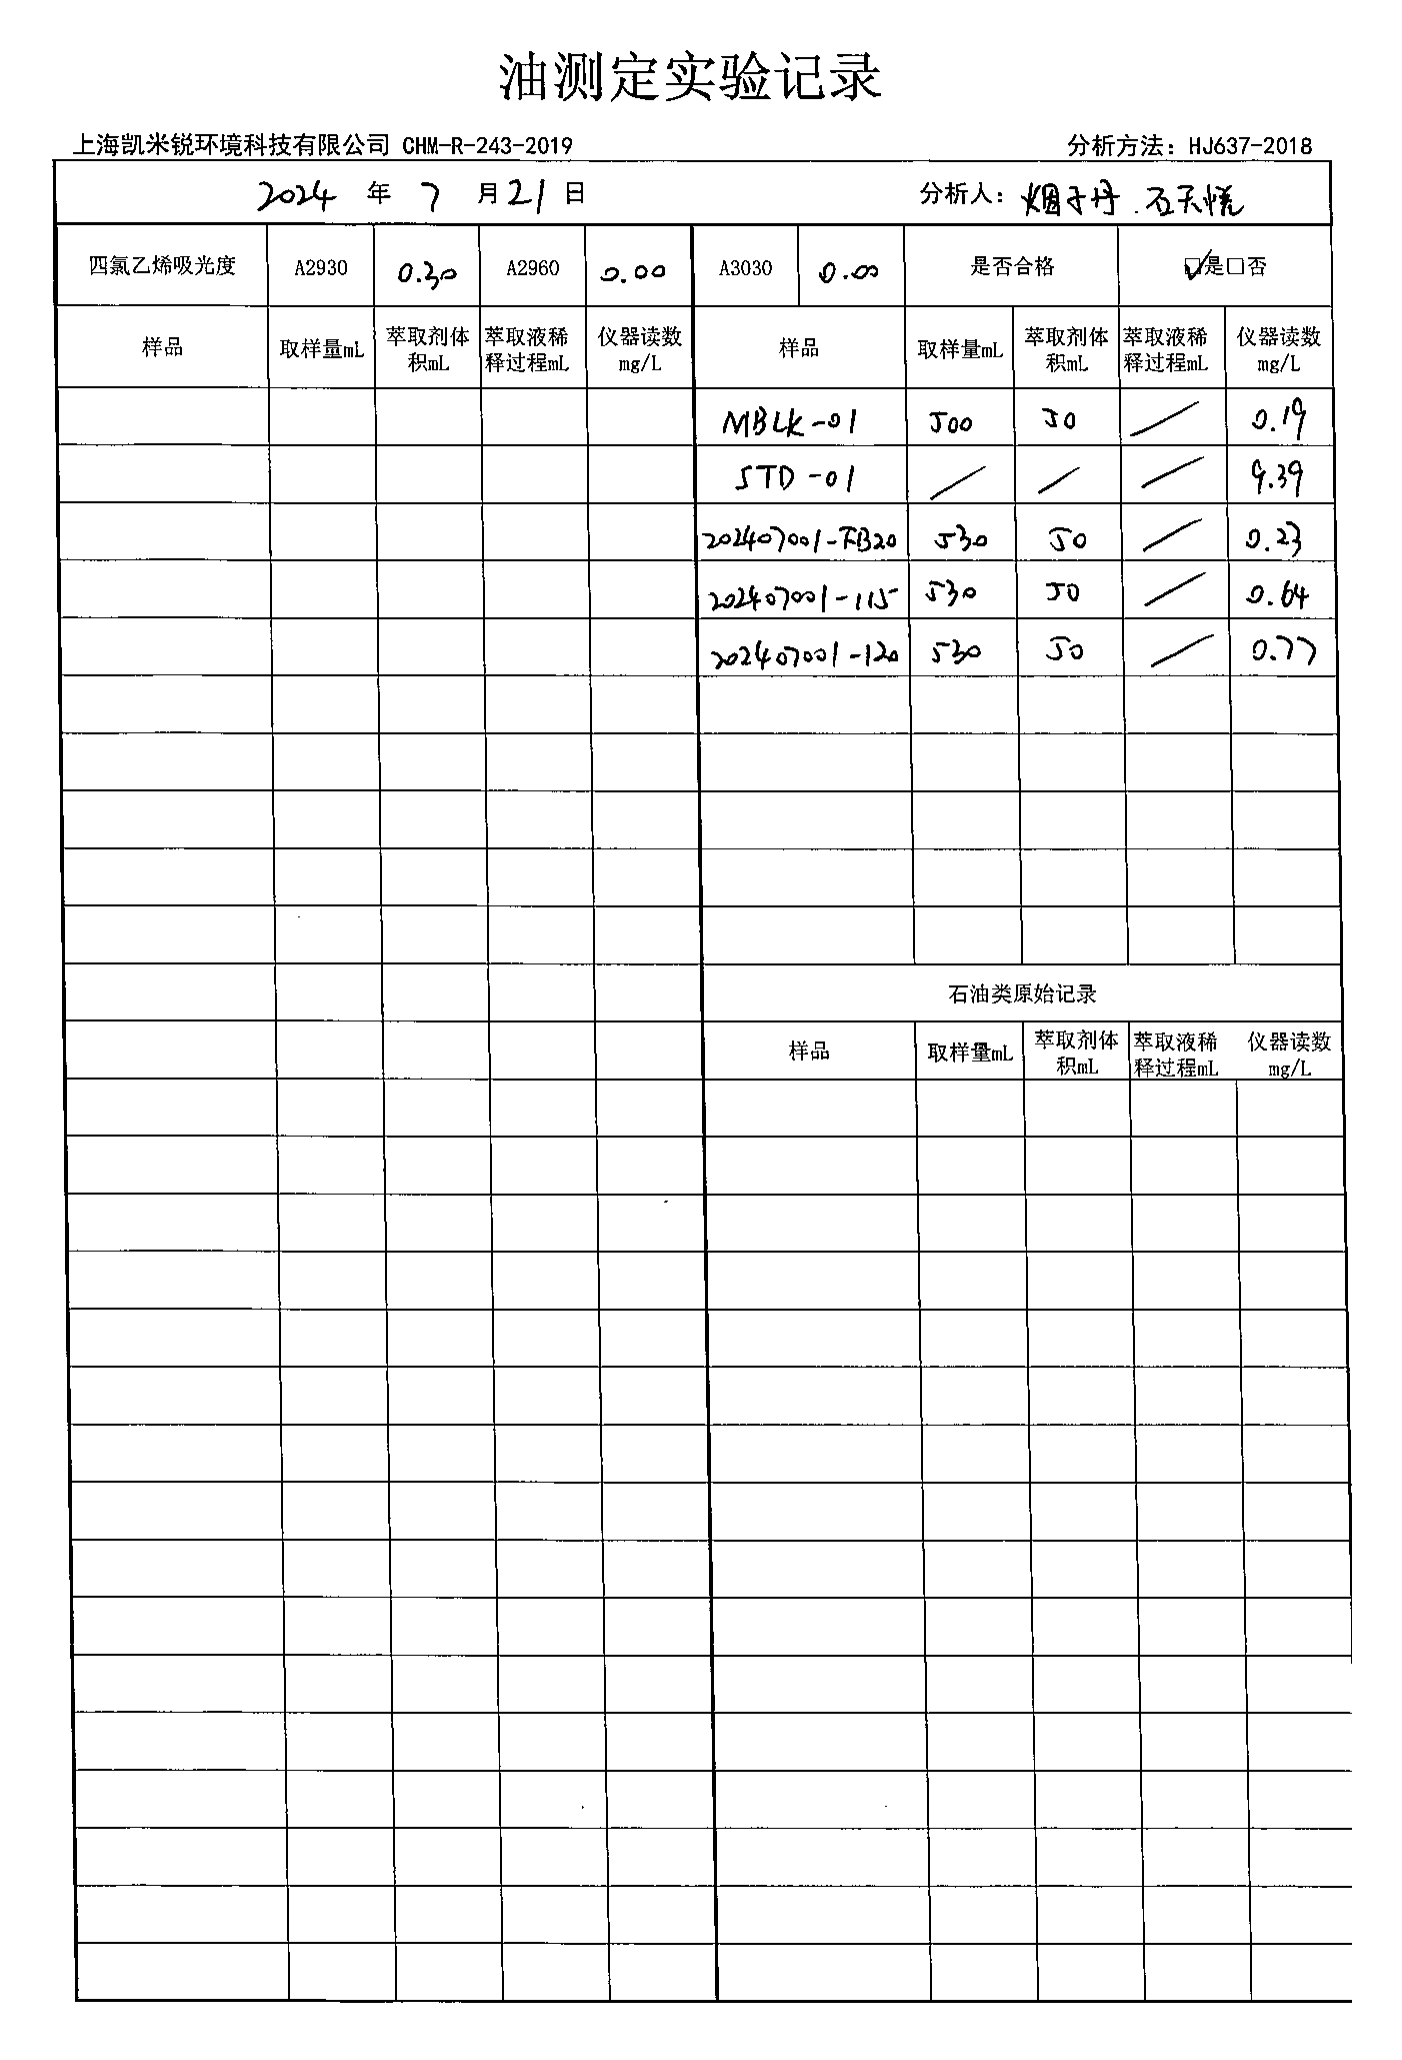 油测定实验记录
上海凯米锐环境科技有限公司 CHM-R-243-2019 分析方法：HJ637-2018
2024 年 7 月 21 日 分析人：
四氯乙烯吸光度 A2930 0.30 A2960 0.00 A3030 0.00 是否合格 ☑是□否
样品 取样量mL 萃取剂体积mL 萃取液稀释过程mL 仪器读数mg/L 样品 取样量mL 萃取剂体积mL 萃取液稀释过程mL 仪器读数mg/L
MBLK-01 500 50 / 0.19
STD-01 / / / 9.39
202407001-FB20 530 50 / 0.23
202407001-115 530 50 / 0.64
202407001-120 530 50 / 0.77
石油类原始记录
样品 取样量mL 萃取剂体积mL 萃取液稀释过程mL 仪器读数mg/L